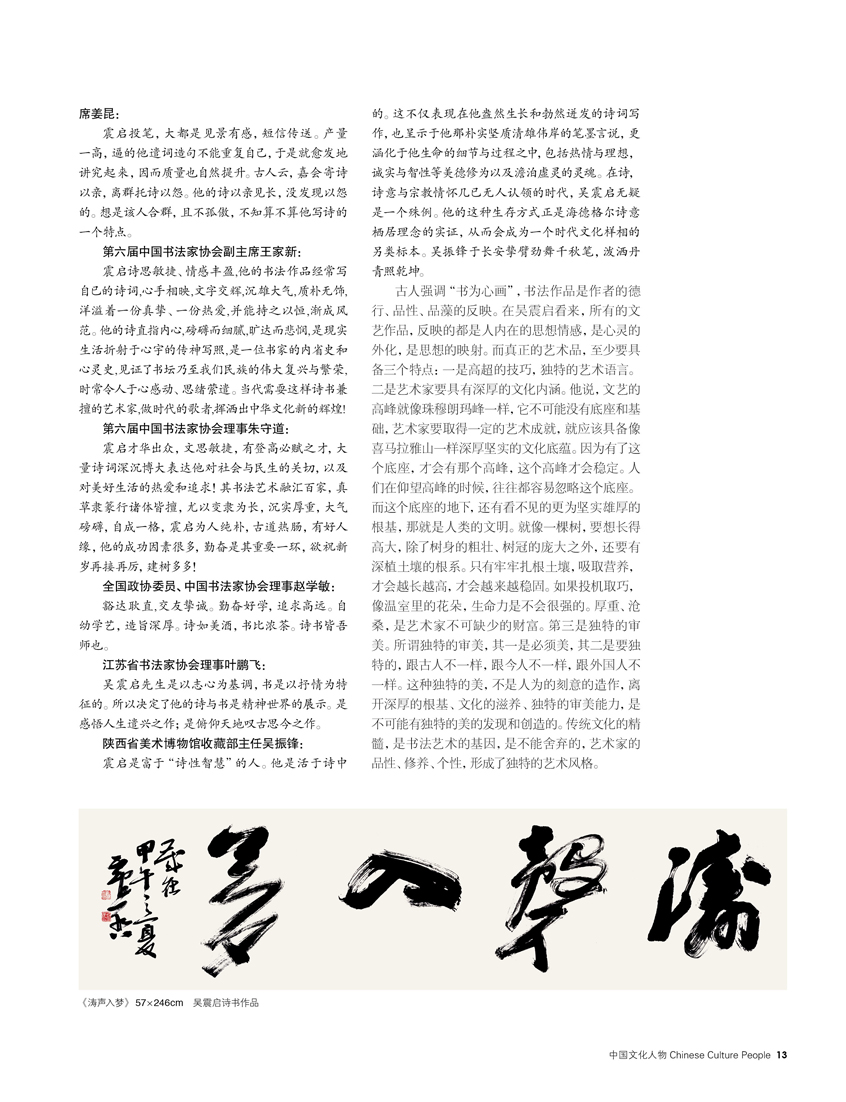 席姜昆：
震启投笔，大都是见景有感，短信传送。产量
一高，逼的他遣词造句不能重复自己，于是就愈发地
讲究起来，因而质量也自然提升。古人云，嘉会寄诗
以亲，离群托诗以怨。他的诗以亲见长，没发现以怨
的。想是该人合群，且不孤傲，不知算不算他写诗的
一个特点。
第六届中国书法家协会副主席王家新：
震启诗思敏捷、情感丰盈，他的书法作品经常写
自己的诗词，心手相映，文字交辉，沉雄大气，质朴无饰，
洋溢着一份真挚、一份热爱，并能持之以恒，渐成风
范。他的诗直指内心，磅礴而细腻，旷达而悲悯，是现实
生活折射于心宇的传神写照，是一位书家的内省史和
心灵史，见证了书坛乃至我们民族的伟大复兴与繁荣，
时常令人于心感动、思绪萦遣。当代需要这样诗书兼
擅的艺术家，做时代的歌者，挥洒出中华文化新的辉煌！
第六届中国书法家协会理事朱守道：
震启才华出众，文思敏捷，有登高必赋之才，大
量诗词深沉博大表达他对社会与民生的关切，以及
对美好生活的热爱和追求！其书法艺术融汇百家，真
草隶篆行诸体皆擅，尤以变隶为长，沉实厚重，大气
磅礴，自成一格，震启为人纯朴，古道热肠，有好人
缘，他的成功因素很多，勤奋是其重要一环，欲祝新
岁再接再厉，建树多多！
全国政协委员、中国书法家协会理事赵学敏：
豁达耿直，交友挚诚。勤奋好学，追求高远。自
幼学艺，造旨深厚。诗如美酒，书比浓茶。诗书皆吾
师也。
江苏省书法家协会理事叶鹏飞：
吴震启先生是以志心为基调，书是以抒情为特
征的。所以决定了他的诗与书是精神世界的展示。是
感悟人生遣兴之作；是俯仰天地叹古思今之作。
陕西省美术博物馆收藏部主任吴振锋：
震启是富于“诗性智慧”的人。他是活于诗中
的。这不仅表现在他盎然生长和勃然迸发的诗词写
作，也呈示于他那朴实坚质清雄伟岸的笔墨言说，更
涵化于他生命的细节与过程之中，包括热情与理想，
诚实与智性等美德修为以及澹泊虚灵的灵魂。在诗，
诗意与宗教情怀几已无人认领的时代，吴震启无疑
是一个殊例。他的这种生存方式正是海德格尔诗意
栖居理念的实证，从而会成为一个时代文化样相的
另类标本。吴振锋于长安挚臂劲舞千秋笔，泼洒丹
青照乾坤。
古人强调“书为心画”，书法作品是作者的德
行、品性、品藻的反映。在吴震启看来，所有的文
艺作品，反映的都是人内在的思想情感，是心灵的
外化，是思想的映射。而真正的艺术品，至少要具
备三个特点：一是高超的技巧，独特的艺术语言。
二是艺术家要具有深厚的文化内涵。他说，文艺的
高峰就像珠穆朗玛峰一样，它不可能没有底座和基
础，艺术家要取得一定的艺术成就，就应该具备像
喜马拉雅山一样深厚坚实的文化底蕴。因为有了这
个底座，才会有那个高峰，这个高峰才会稳定。人
们在仰望高峰的时候，往往都容易忽略这个底座。
而这个底座的地下，还有看不见的更为坚实雄厚的
根基，那就是人类的文明。就像一棵树，要想长得
高大，除了树身的粗壮、树冠的庞大之外，还要有
深植土壤的根系。只有牢牢扎根土壤，吸取营养，
才会越长越高，才会越来越稳固。如果投机取巧，
像温室里的花朵，生命力是不会很强的。厚重、沧
桑，是艺术家不可缺少的财富。第三是独特的审
美。所谓独特的审美，其一是必须美，其二是要独
特的，跟古人不一样，跟今人不一样，跟外国人不
一样。这种独特的美，不是人为的刻意的造作，离
开深厚的根基、文化的滋养、独特的审美能力，是
不可能有独特的美的发现和创造的。传统文化的精
髓，是书法艺术的基因，是不能舍弃的，艺术家的
品性、修养、个性，形成了独特的艺术风格。
濤聲入夢
歲在
甲午之夏
震啓
《涛声入梦》57×246cm 吴震启诗书作品
中国文化人物 Chinese Culture People 13